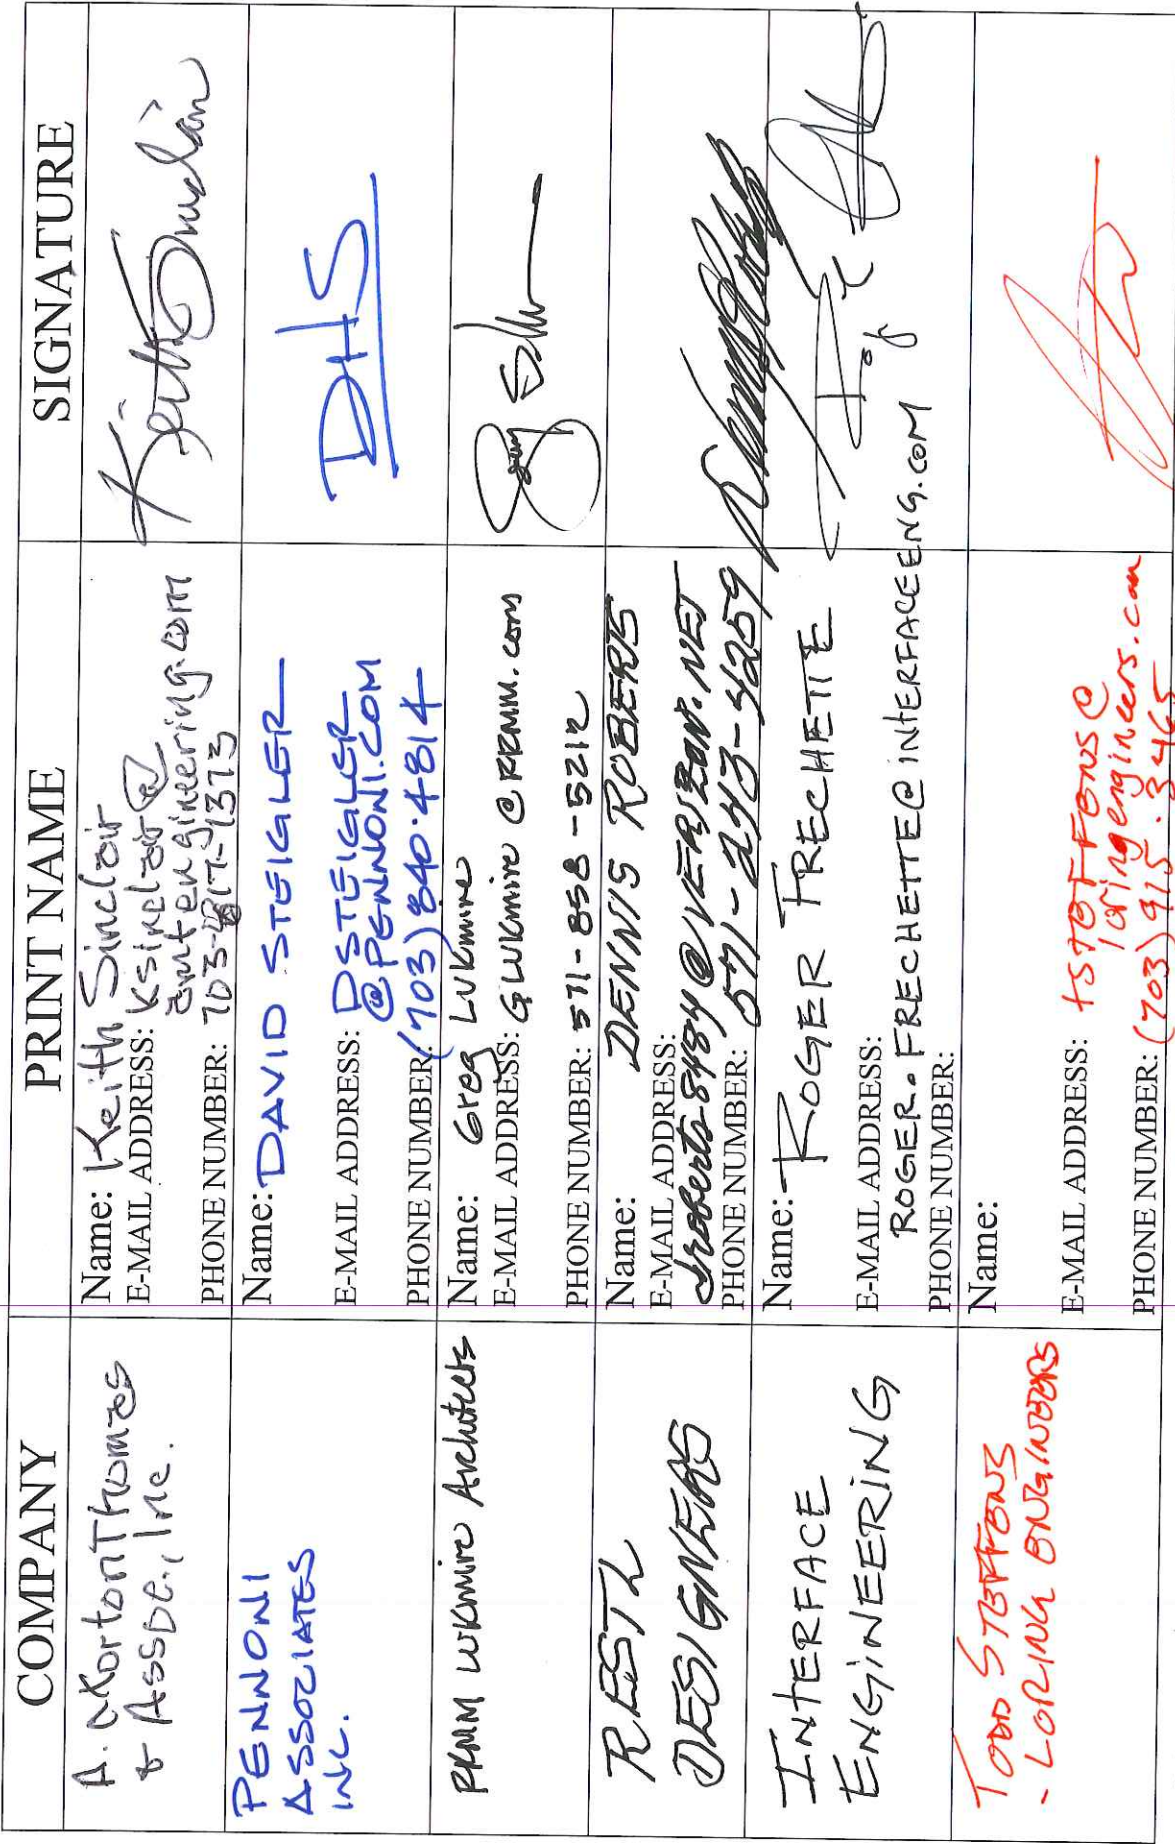 COMPANY
PRINT NAME
SIGNATURE
A. Morton Thomas
& Assoc., Inc.
Name: Keith Sinclair
E-MAIL ADDRESS: ksinclair@
amtengineering.com
PHONE NUMBER: 703-817-1373
Keith Sinclair
PENNONI
ASSOCIATES
INC.
Name: DAVID STEIGLER
E-MAIL ADDRESS: DSTEIGLER
@PENNONI.COM
PHONE NUMBER: (703) 840.4814
DHS
RRMM Lukmire Architects
Name: Greg Lukmire
E-MAIL ADDRESS: GLUKmire @ RRMM.com
PHONE NUMBER: 571-858-5212
RESTL
DESIGNERS
Name: DENNIS ROBERTS
E-MAIL ADDRESS:
droberts8484@VERIZON.NET
PHONE NUMBER: 571-243-4259
INTERFACE
ENGINEERING
Name: ROGER FRECHETTE
E-MAIL ADDRESS:
ROGER.FRECHETTE@INTERFACEENG.COM
PHONE NUMBER:
TODD STEFFENS
- LORING ENGINEERS
Name:
E-MAIL ADDRESS: tSTEFFENS@
loringengineers.com
PHONE NUMBER: (703) 915.3465